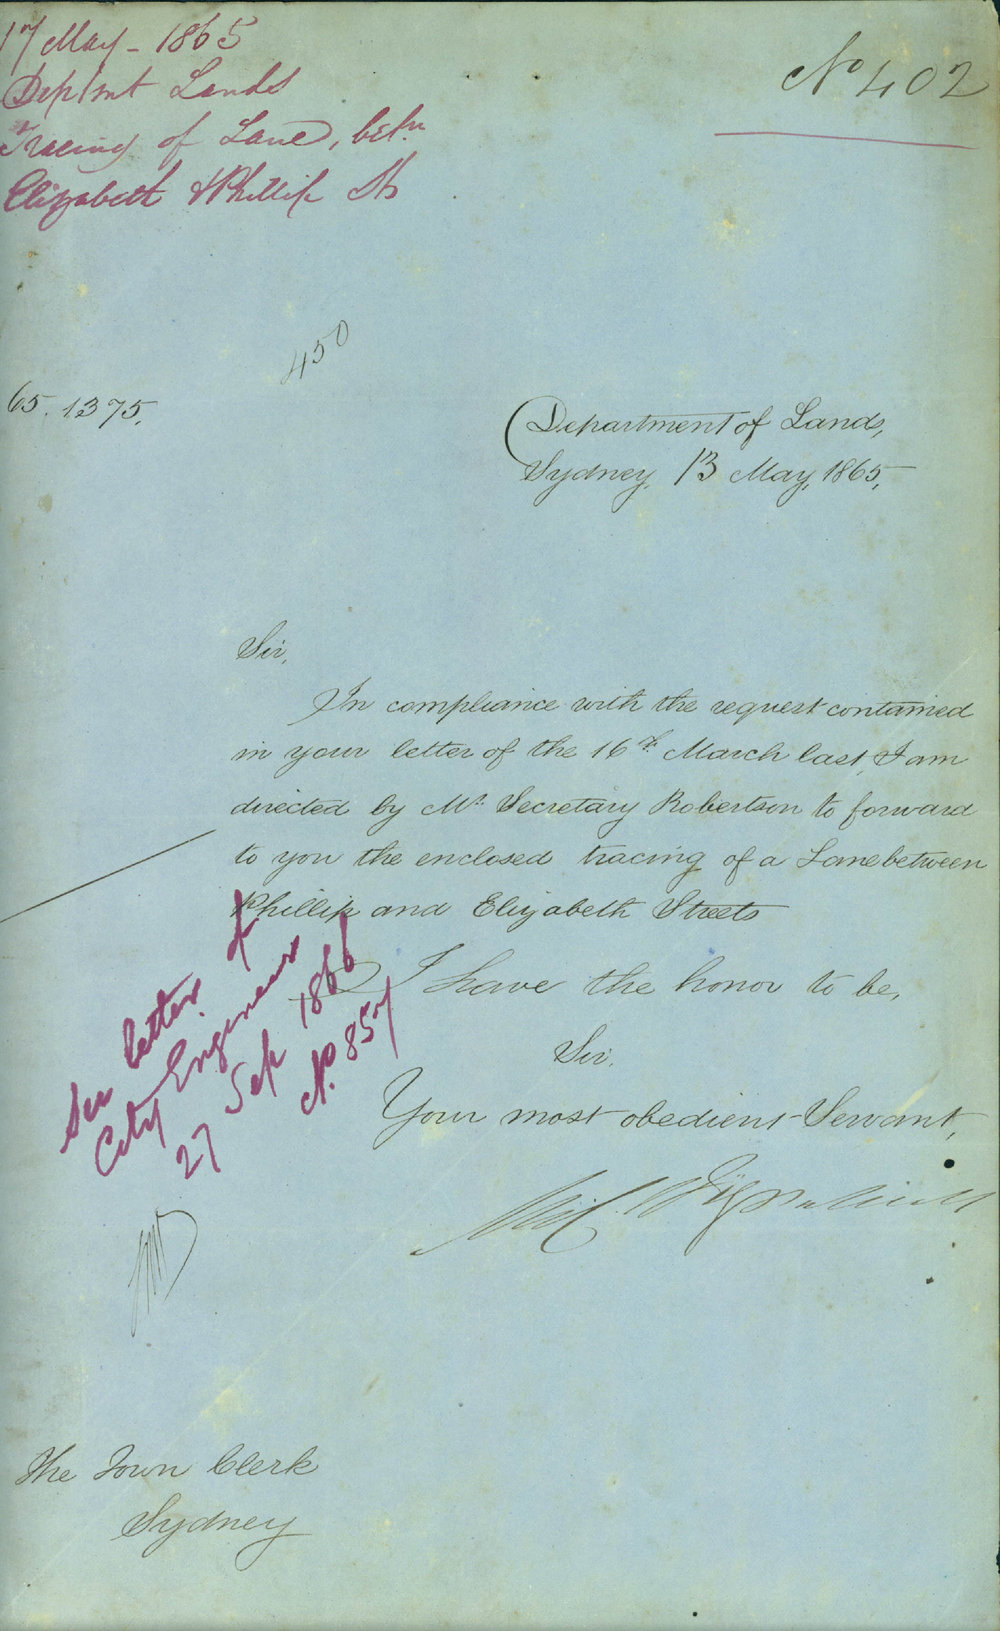 17 May - 1865
Deptmt Lands
Tracing of Lane, betn
Elizabeth & Phillip Sts
No 402
450
65.1375.
Department of Lands,
Sydney, 13 May, 1865,
Sir,
In compliance with the request contained
in your letter of the 16th March last, I am
directed by Mr. Secretary Robertson to forward
to you the enclosed tracing of a Lane between
Phillip and Elizabeth Streets
I have the honor to be,
Sir,
Your most obedient Servant,
Mic. Fitzpatrick
See letter of
City Engineer
27 Sep 1866
No. 857
The Town Clerk
Sydney